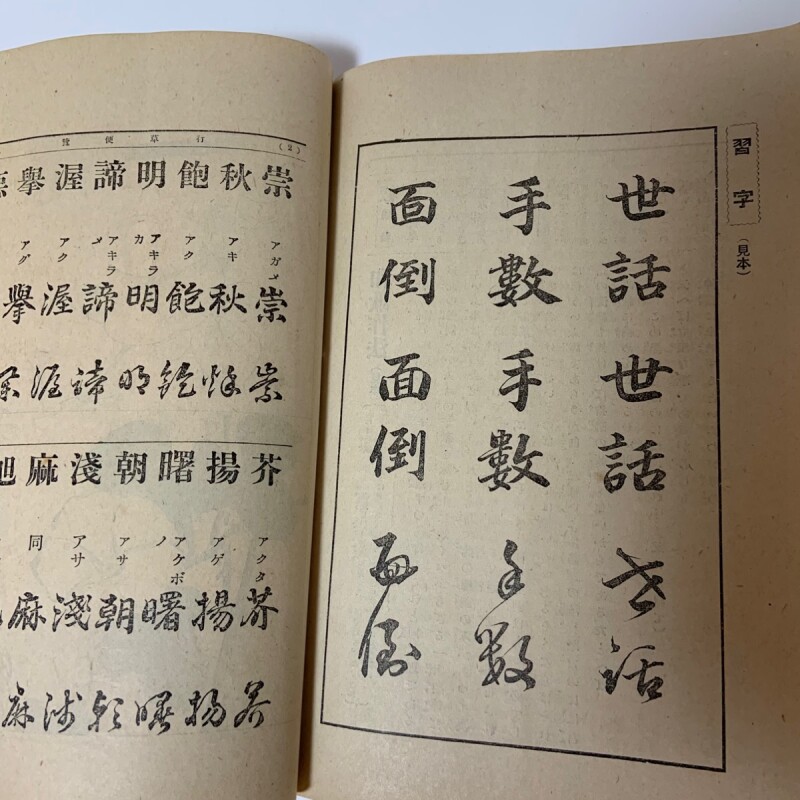 習字
（見本）
世話世話世話
手數手數手數
面倒面倒面倒
（2）
行草便覽
崇秋飽明諦渥擧
アガメ アキ アク アキラカ アキラメ アク アグ
崇秋飽明諦渥擧
崇秋飽明諦渥
芥揚曙朝淺麻
アクタ アゲ アケボノ アサ アサ 同
芥揚曙朝淺麻
芥揚曙朝淺麻